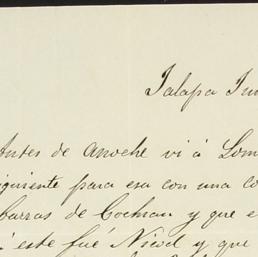 Jalapa Jun
Antes de anoche vi á Lom
iguiente para esa con una co
barras de Cochran y que e
este fué Nicol y que